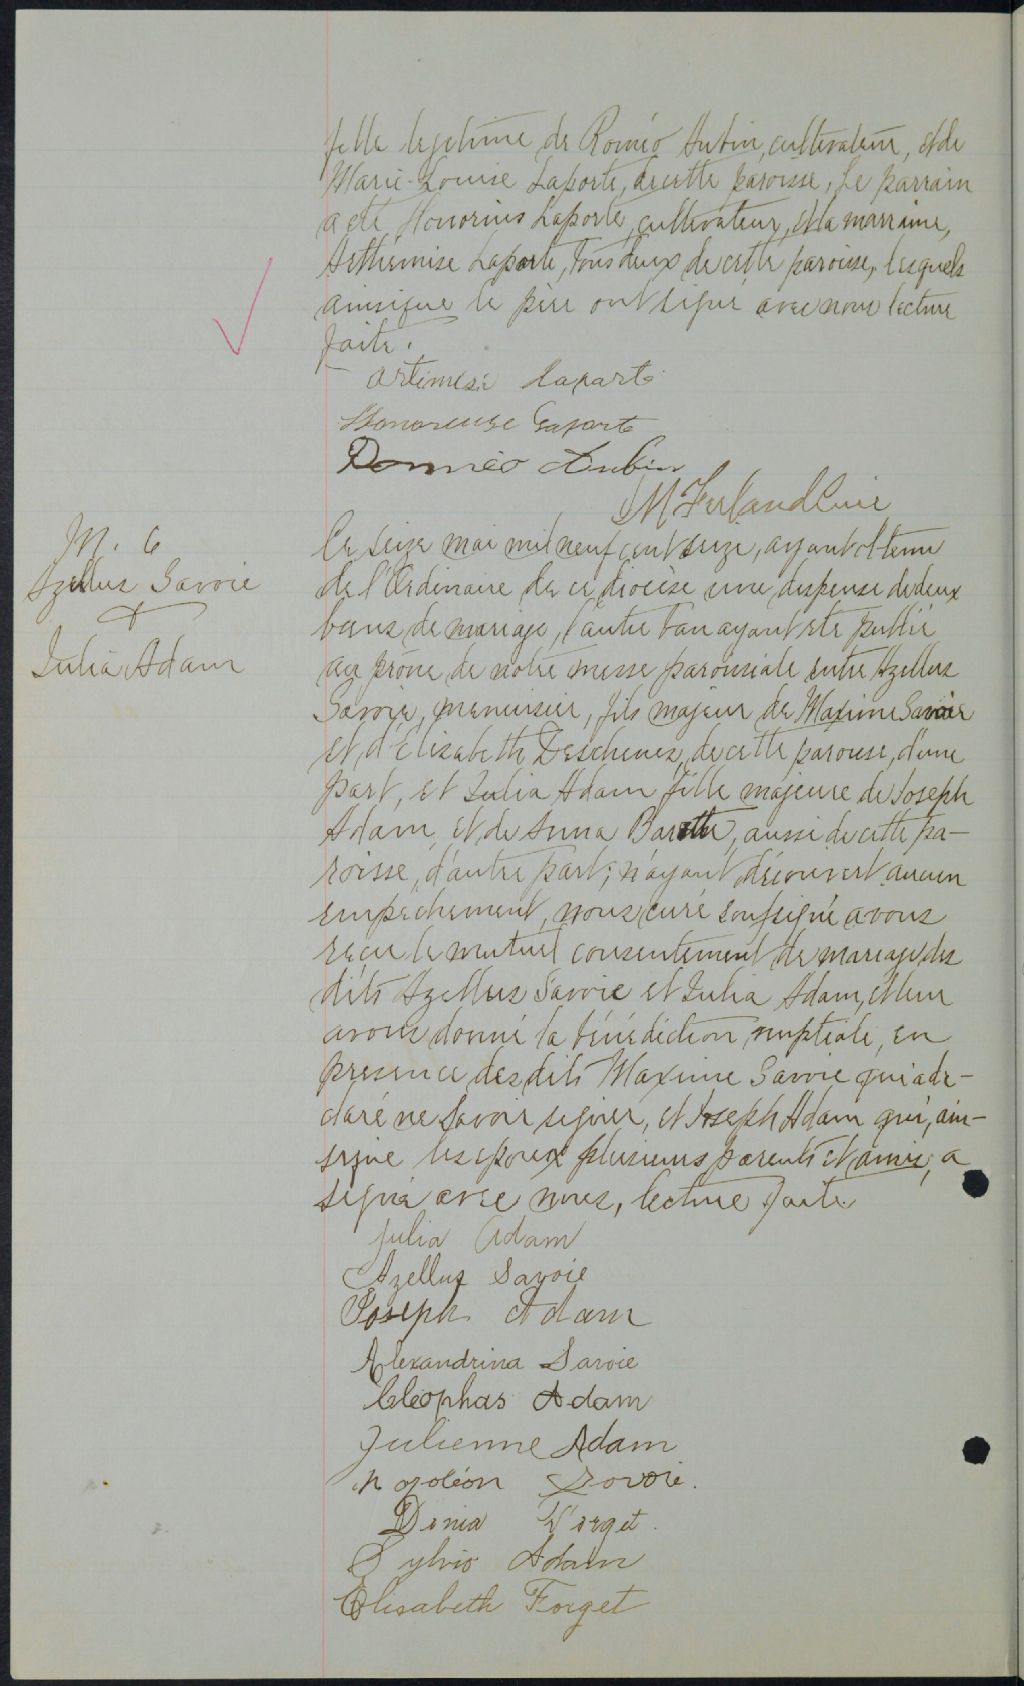 fille legitime de Roméo Aubin, cultivateur, et de
Marie-Louise Laporte, de cette paroisse, Le parrain
a été Honorius Laporte, cultivateur, et la marraine,
Arthémise Laporte, tous deux de cette paroisse, lesquels
ainsi que le père ont signé avec nous lecture
faite.
Artemise Laporte
Laporte
Roméo Aubin
M Ferland Curé
M. 6
Azellus Savoie
&
Julia Adam
Ce seize mai mil neuf cent seize, ayant obtenu
de l'Ordinaire de ce diocèse une dispense de deux
bans de mariage, l'autre ban ayant été publié
au prône de notre messe paroissiale entre Azellus
Savoie, menuisier, fils majeur de Maxime Savoie
et d'Elizabeth Deschenes, de cette paroisse, d'une
part, et Julia Adam fille majeure de Joseph
Adam, et de Anna Barette, aussi de cette pa-
roisse, d'autre part; n'ayant découvert aucun
empêchement, nous curé soussigné avons
reçu le mutuel consentement de mariage des
dits Azellus Savoie et Julia Adam, et leur
avons donné la bénédiction nuptiale, en
presence des dits Maxime Savoie qui a dé-
claré ne savoir signer, et Joseph Adam qui, ain-
si que les époux plusieurs parents et amis, a
signé avec nous, lecture faite
Julia Adam
Azellus Savoie
Joseph Adam
Alexandrina Savoie
Cléophas Adam
Julienne Adam
Napoléon Savoie.
Donia Forget.
Sylvio Adam
Elisabeth Forget